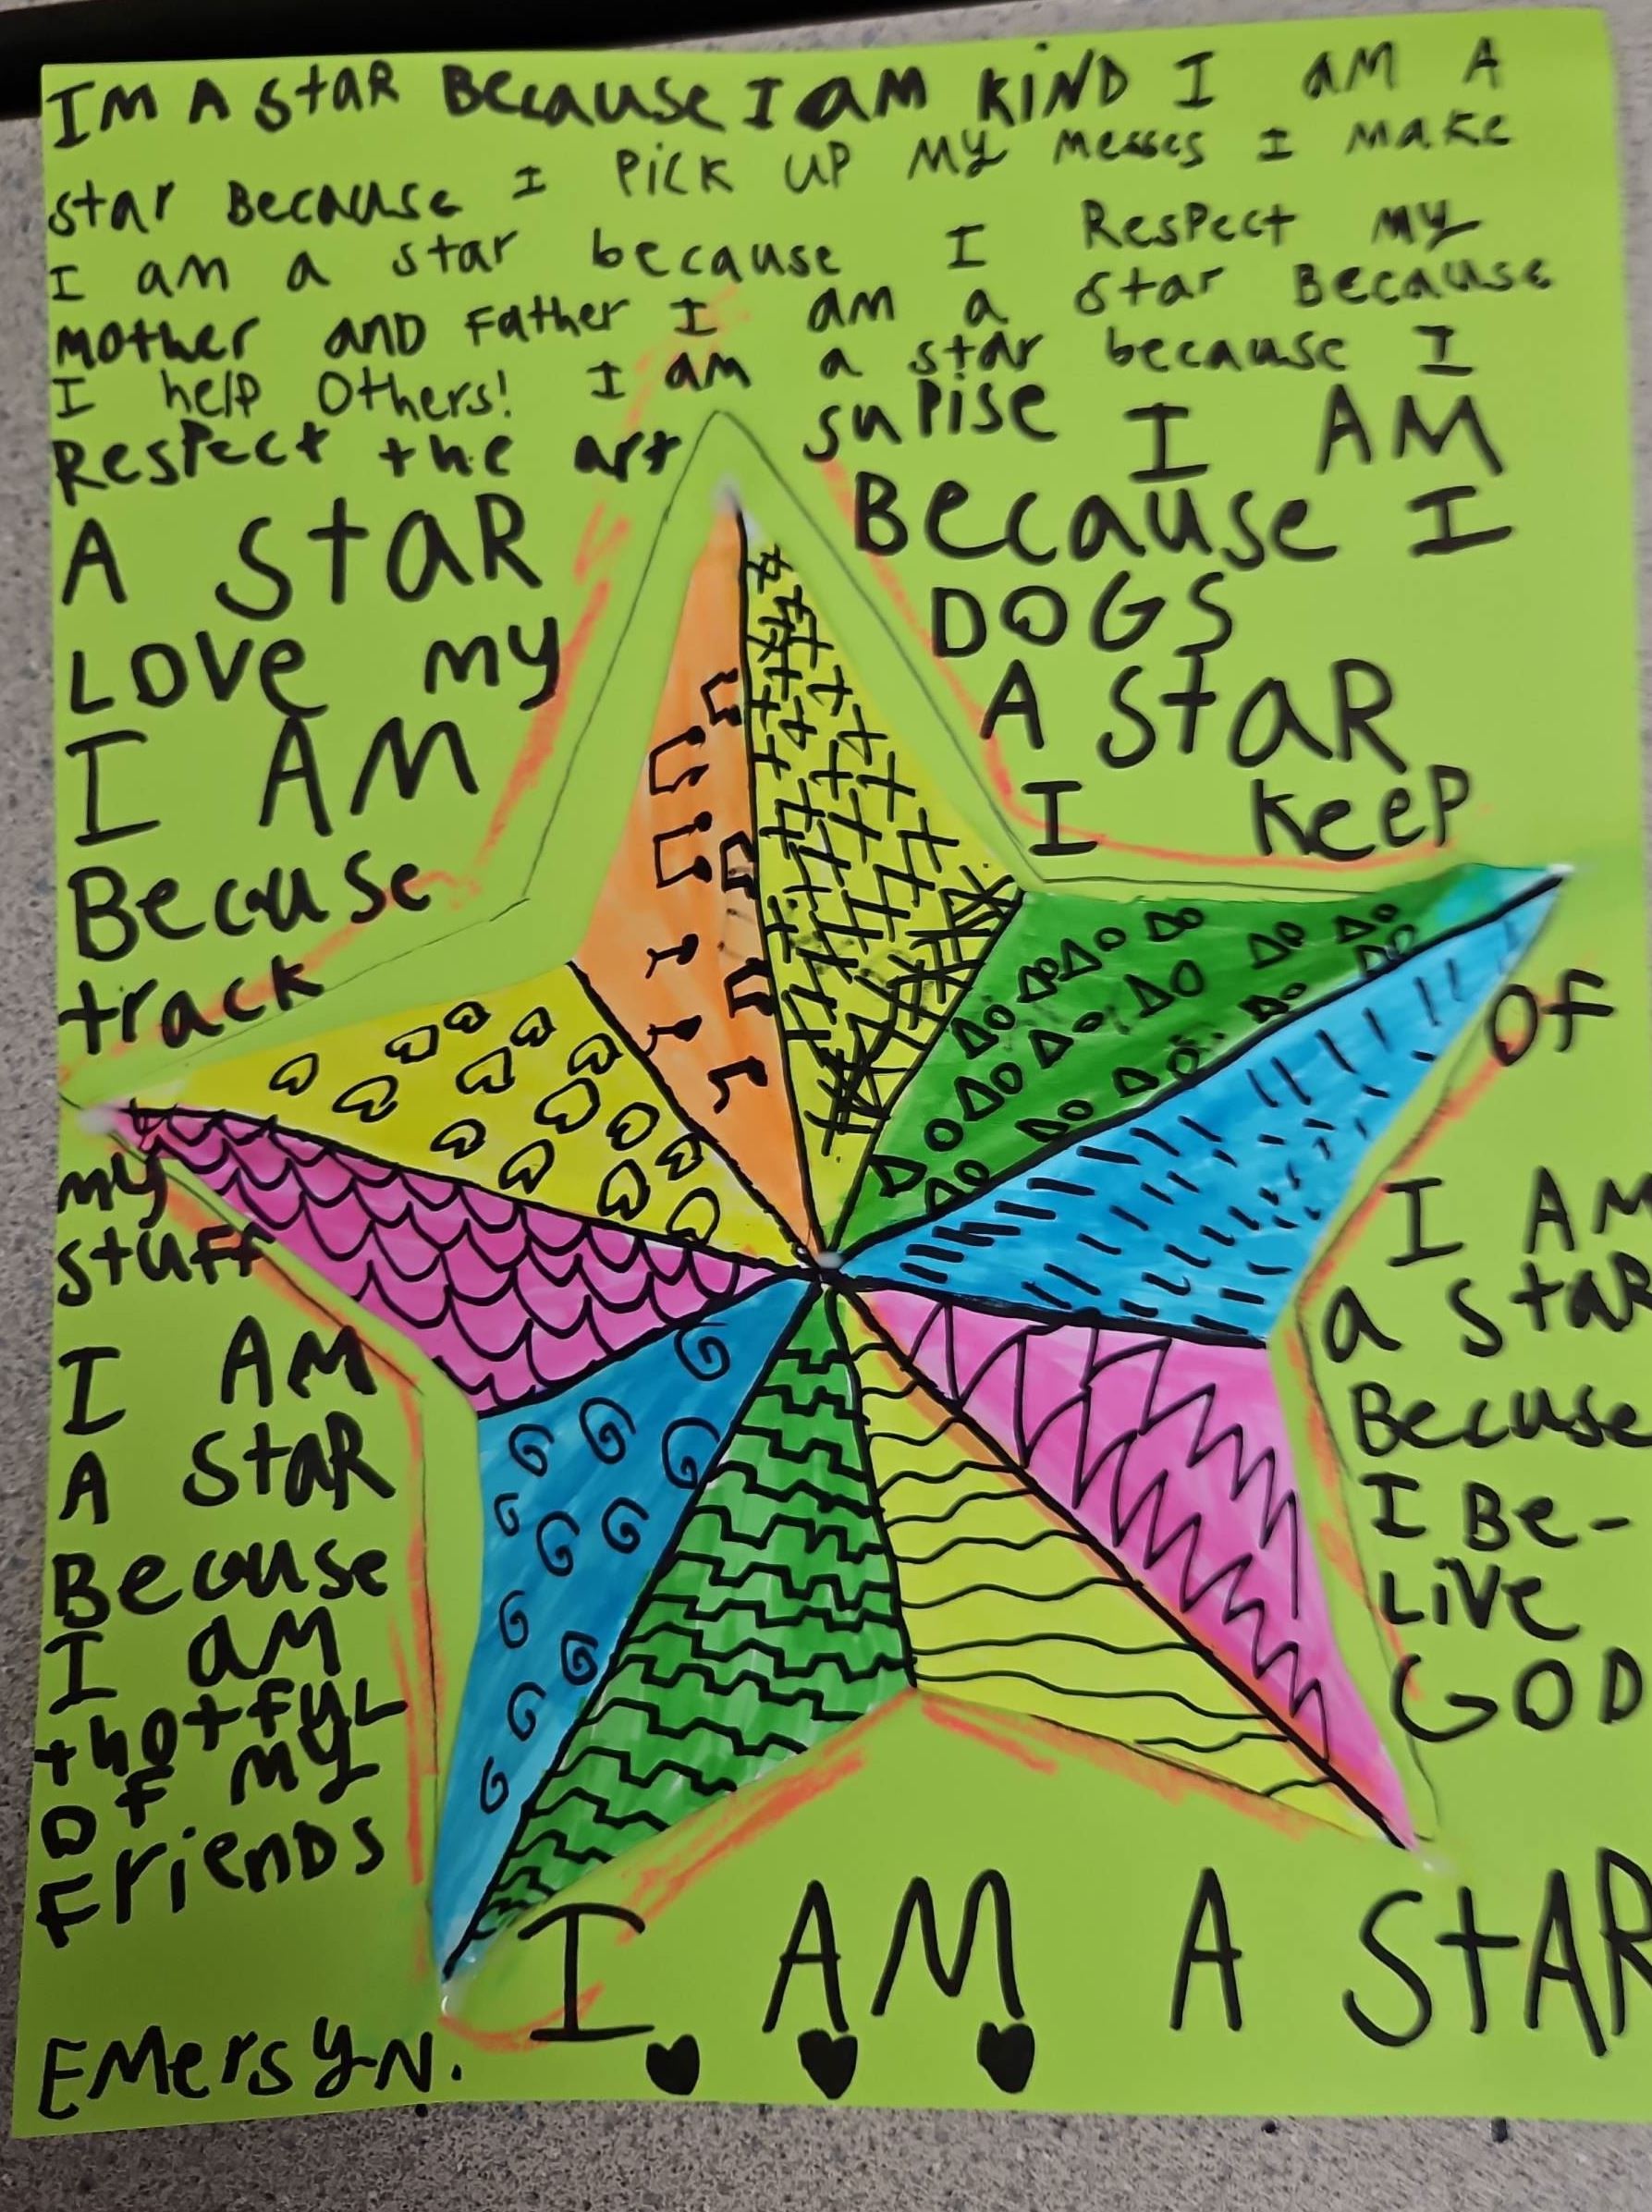 IM A StaR Because I aM KiND I aM A
star Because I Pick UP My Messes I Make
I am a star because I Respect My
Mother AND Father I am a star Because
I help Others! I am a star because I
Respect the art supise I AM
A StaR Because I
LOVe my DOGS
I AM A StaR
Becuase I KeeP
track OF
my
stuff
I AM
A StaR
Becuase
I aM
thotfuL
OF My
Friends
I AM
a StaR
Becuse
I Be-
Live
GOD
I AM A StAR
EMersyN.